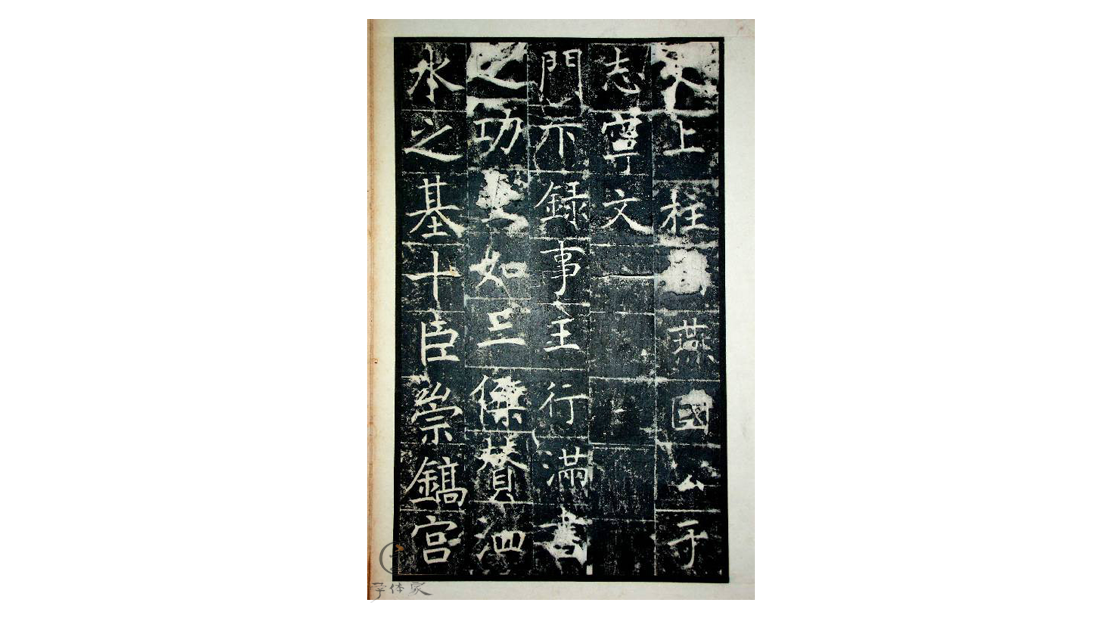 大上柱國燕國公于
志寧文
門下錄事王行滿書
之功是如三傑賛泗
水之基十臣崇鎬宮
字体家